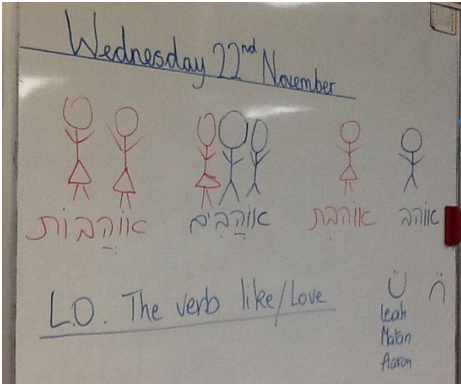 Wednesday 22nd November
אוֹהֵב אוֹהֶבֶת אוֹהֲבִים אוֹהֲבוֹת
L.O. The verb like/Love
Leah
Matan
Aaron